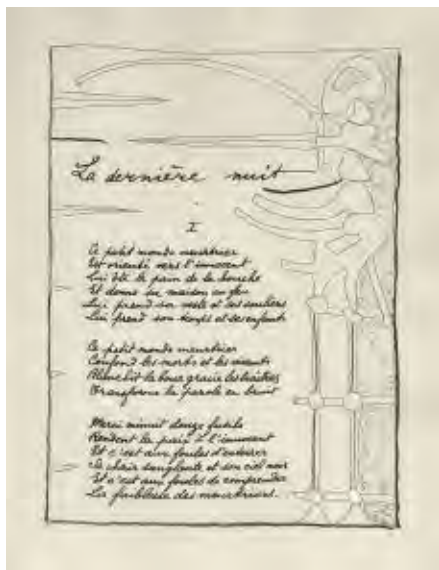 La dernière nuit
I
Ce petit monde meurtrier
Est orienté vers l'innocent
Lui ôte le pain de la bouche
Et donne sa maison au feu
Lui prend sa veste et ses souliers
Lui prend son temps et ses enfants
Ce petit monde meurtrier
Confond les morts et les vivants
Blanchit la boue gracie les traîtres
Transforme la parole en bruit
Merci minuit douze fusils
Rendent la paix à l'innocent
Et c'est aux foules d'enterrer
Sa chair sanglante et son ciel noir
Et c'est aux foules de comprendre
La faiblesse des meurtriers.